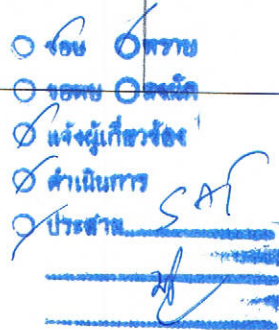 ○ ชอบ ○ ทราบ
○ ขอพบ ○
○ แจ้งผู้เกี่ยวข้อง
○ ดำเนินการ
○ ประสาน